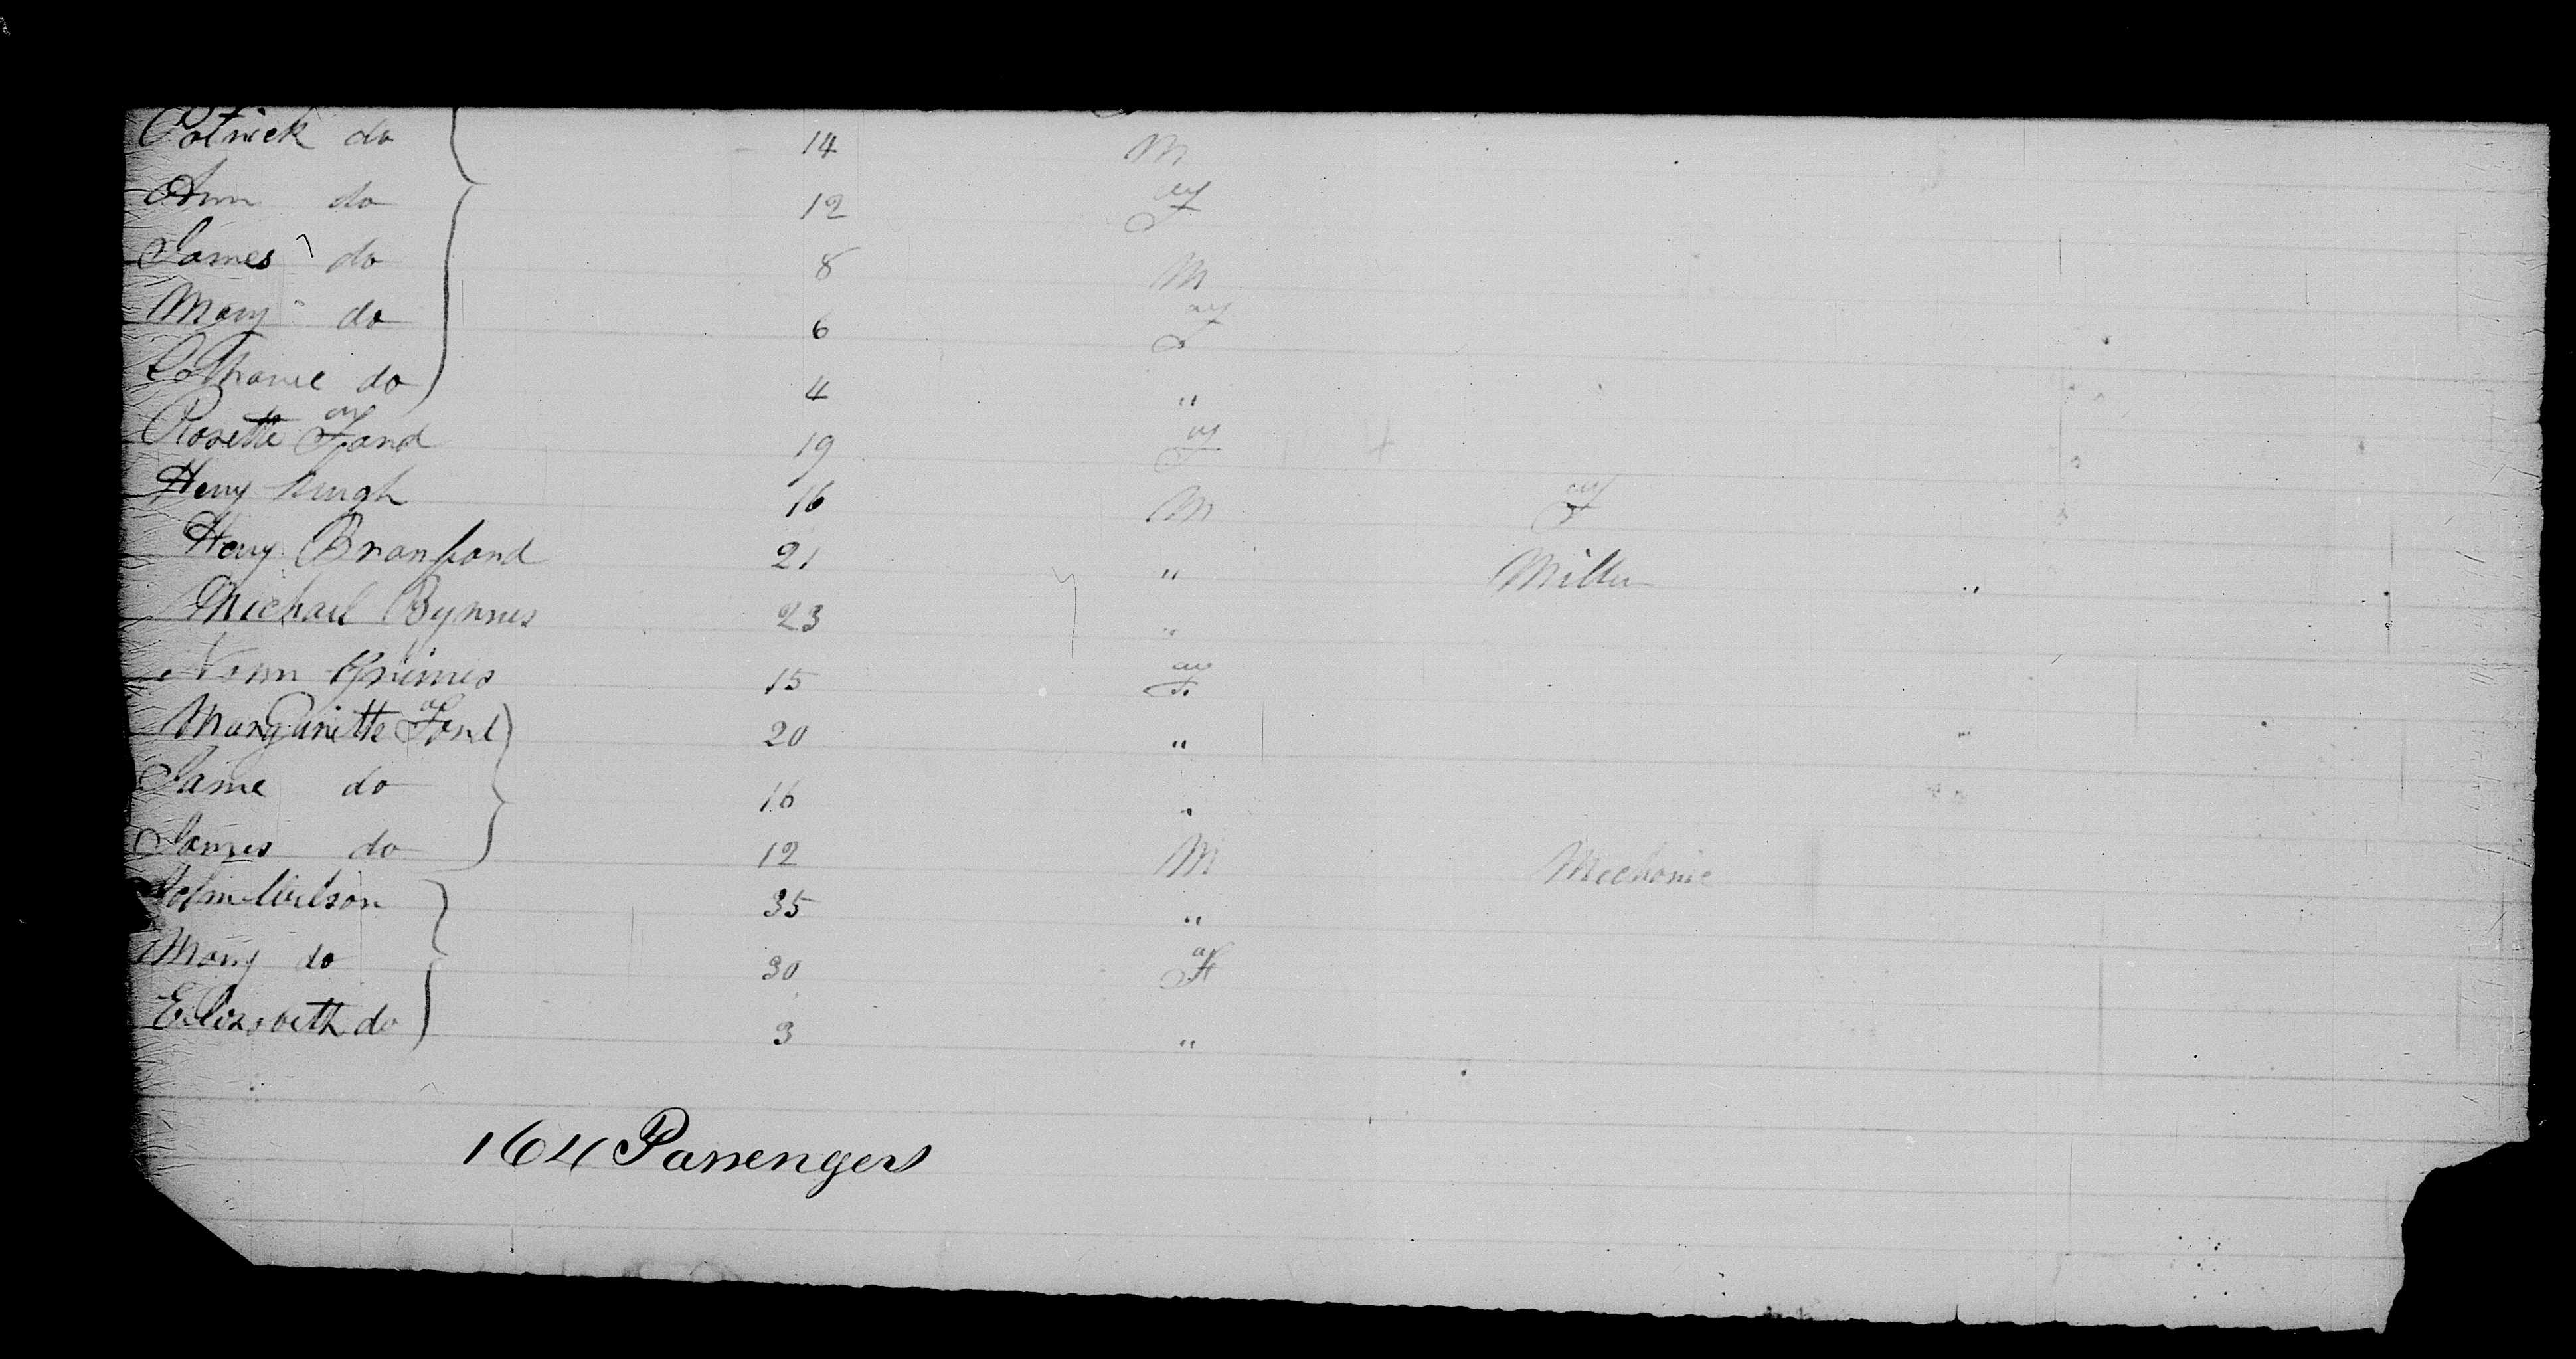 Patrick do 14 M
Ann do 12 F
James do 8 M
Mary do 6 F
Catharine do 4 "
Rosette Ford 19 F
Henry 16 M F
Henry Bransford 21 " Miller "
Michael Byrnes 23 "
Ann Grimes 15 F
Margarette Ford 20 "
Jane do 16 "
James do 12 M Mechanic
John Wilson 35 "
Mary do 30 F
Elizabeth do 3 "
164 Passengers